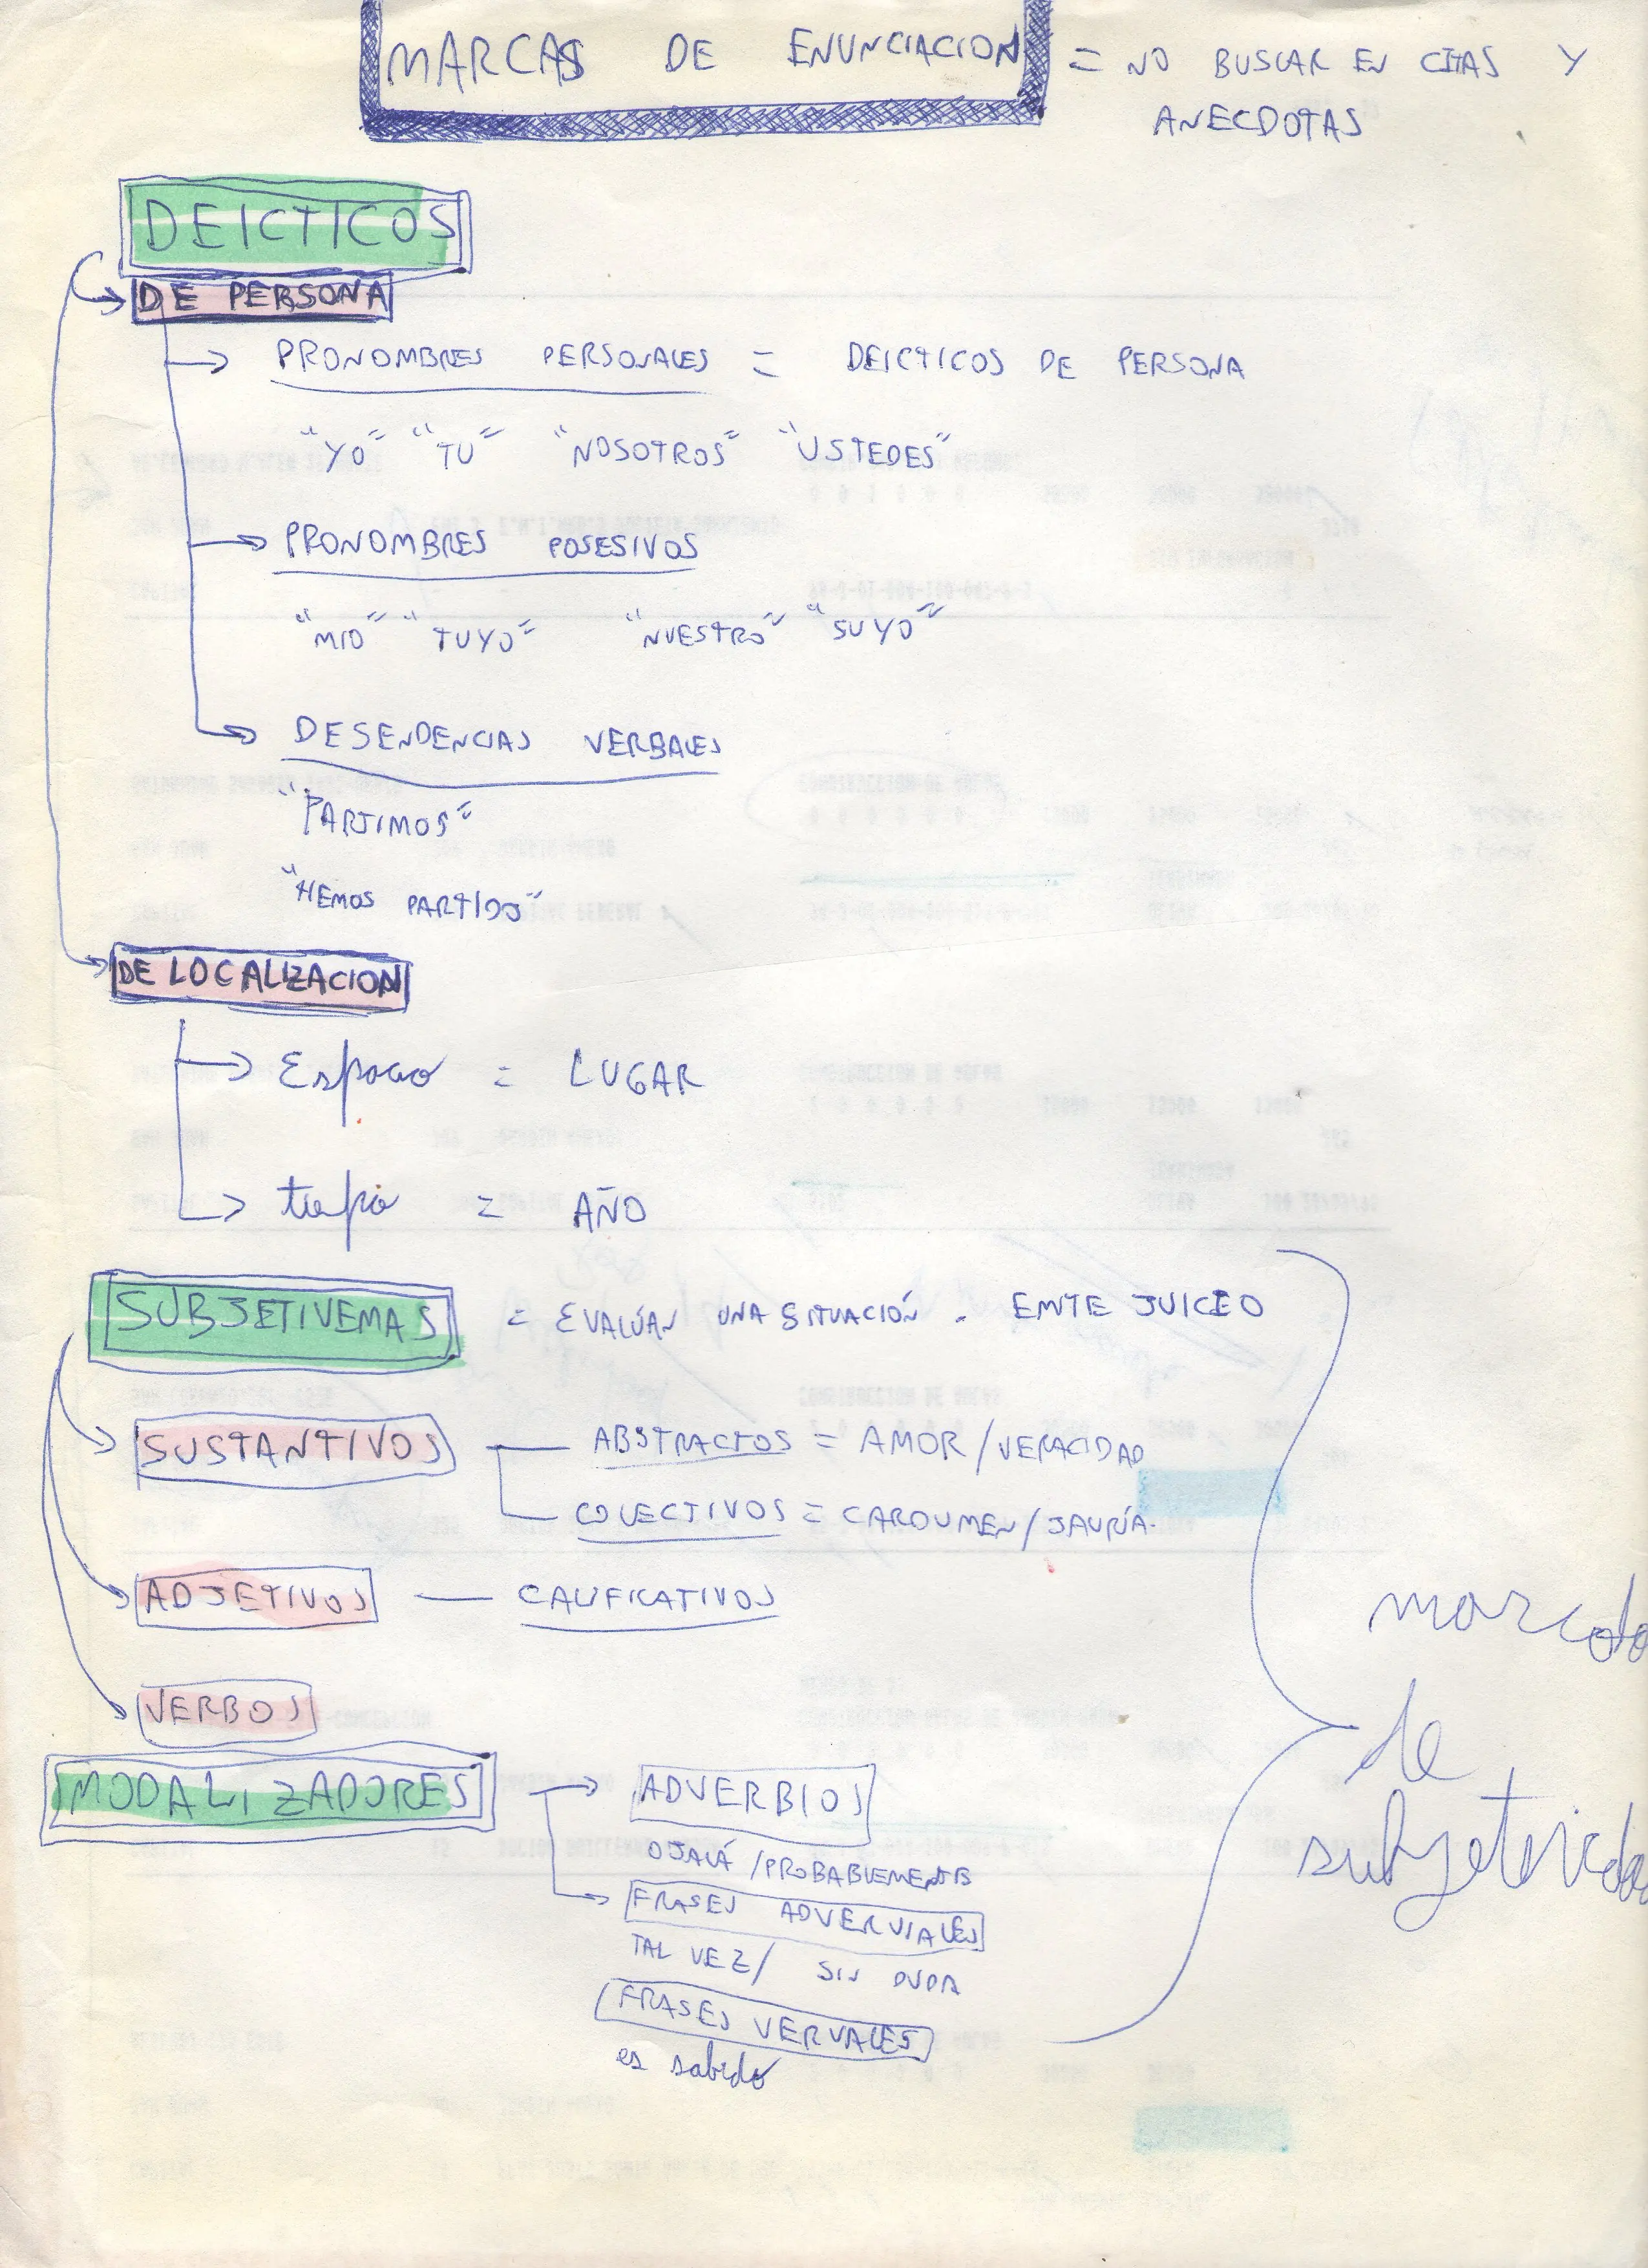 MARCAS DE ENUNCIACION = NO BUSCAR EN CITAS Y
ANECDOTAS
DEICTICOS
DE PERSONA
PRONOMBRES PERSONALES = DEICTICOS DE PERSONA
"YO" "TU" "NOSOTROS" "USTEDES"
PRONOMBRES POSESIVOS
"MIO" "TUYO" "NUESTRO" "SUYO"
DESENDENCIAS VERBALES
"PARTIMOS"
"HEMOS PARTIDO"
DE LOCALIZACION
Espacio = LUGAR
= AÑO
SUBJETIVEMAS = EVALÚAN UNA SITUACIÓN - EMITE JUICIO
SUSTANTIVOS ABSTRACTOS = AMOR/VERACIDAD
COLECTIVOS = CARDUMEN/JAURÍA.
ADJETIVOS CALIFICATIVOS
VERBOS
MODALIZADORES ADVERBIOS
OJALÁ /PROBABLEMENTE
FRASES ADVERVIALES
TAL VEZ/ SIN DUDA
FRASES VERVALES
es sabido
de